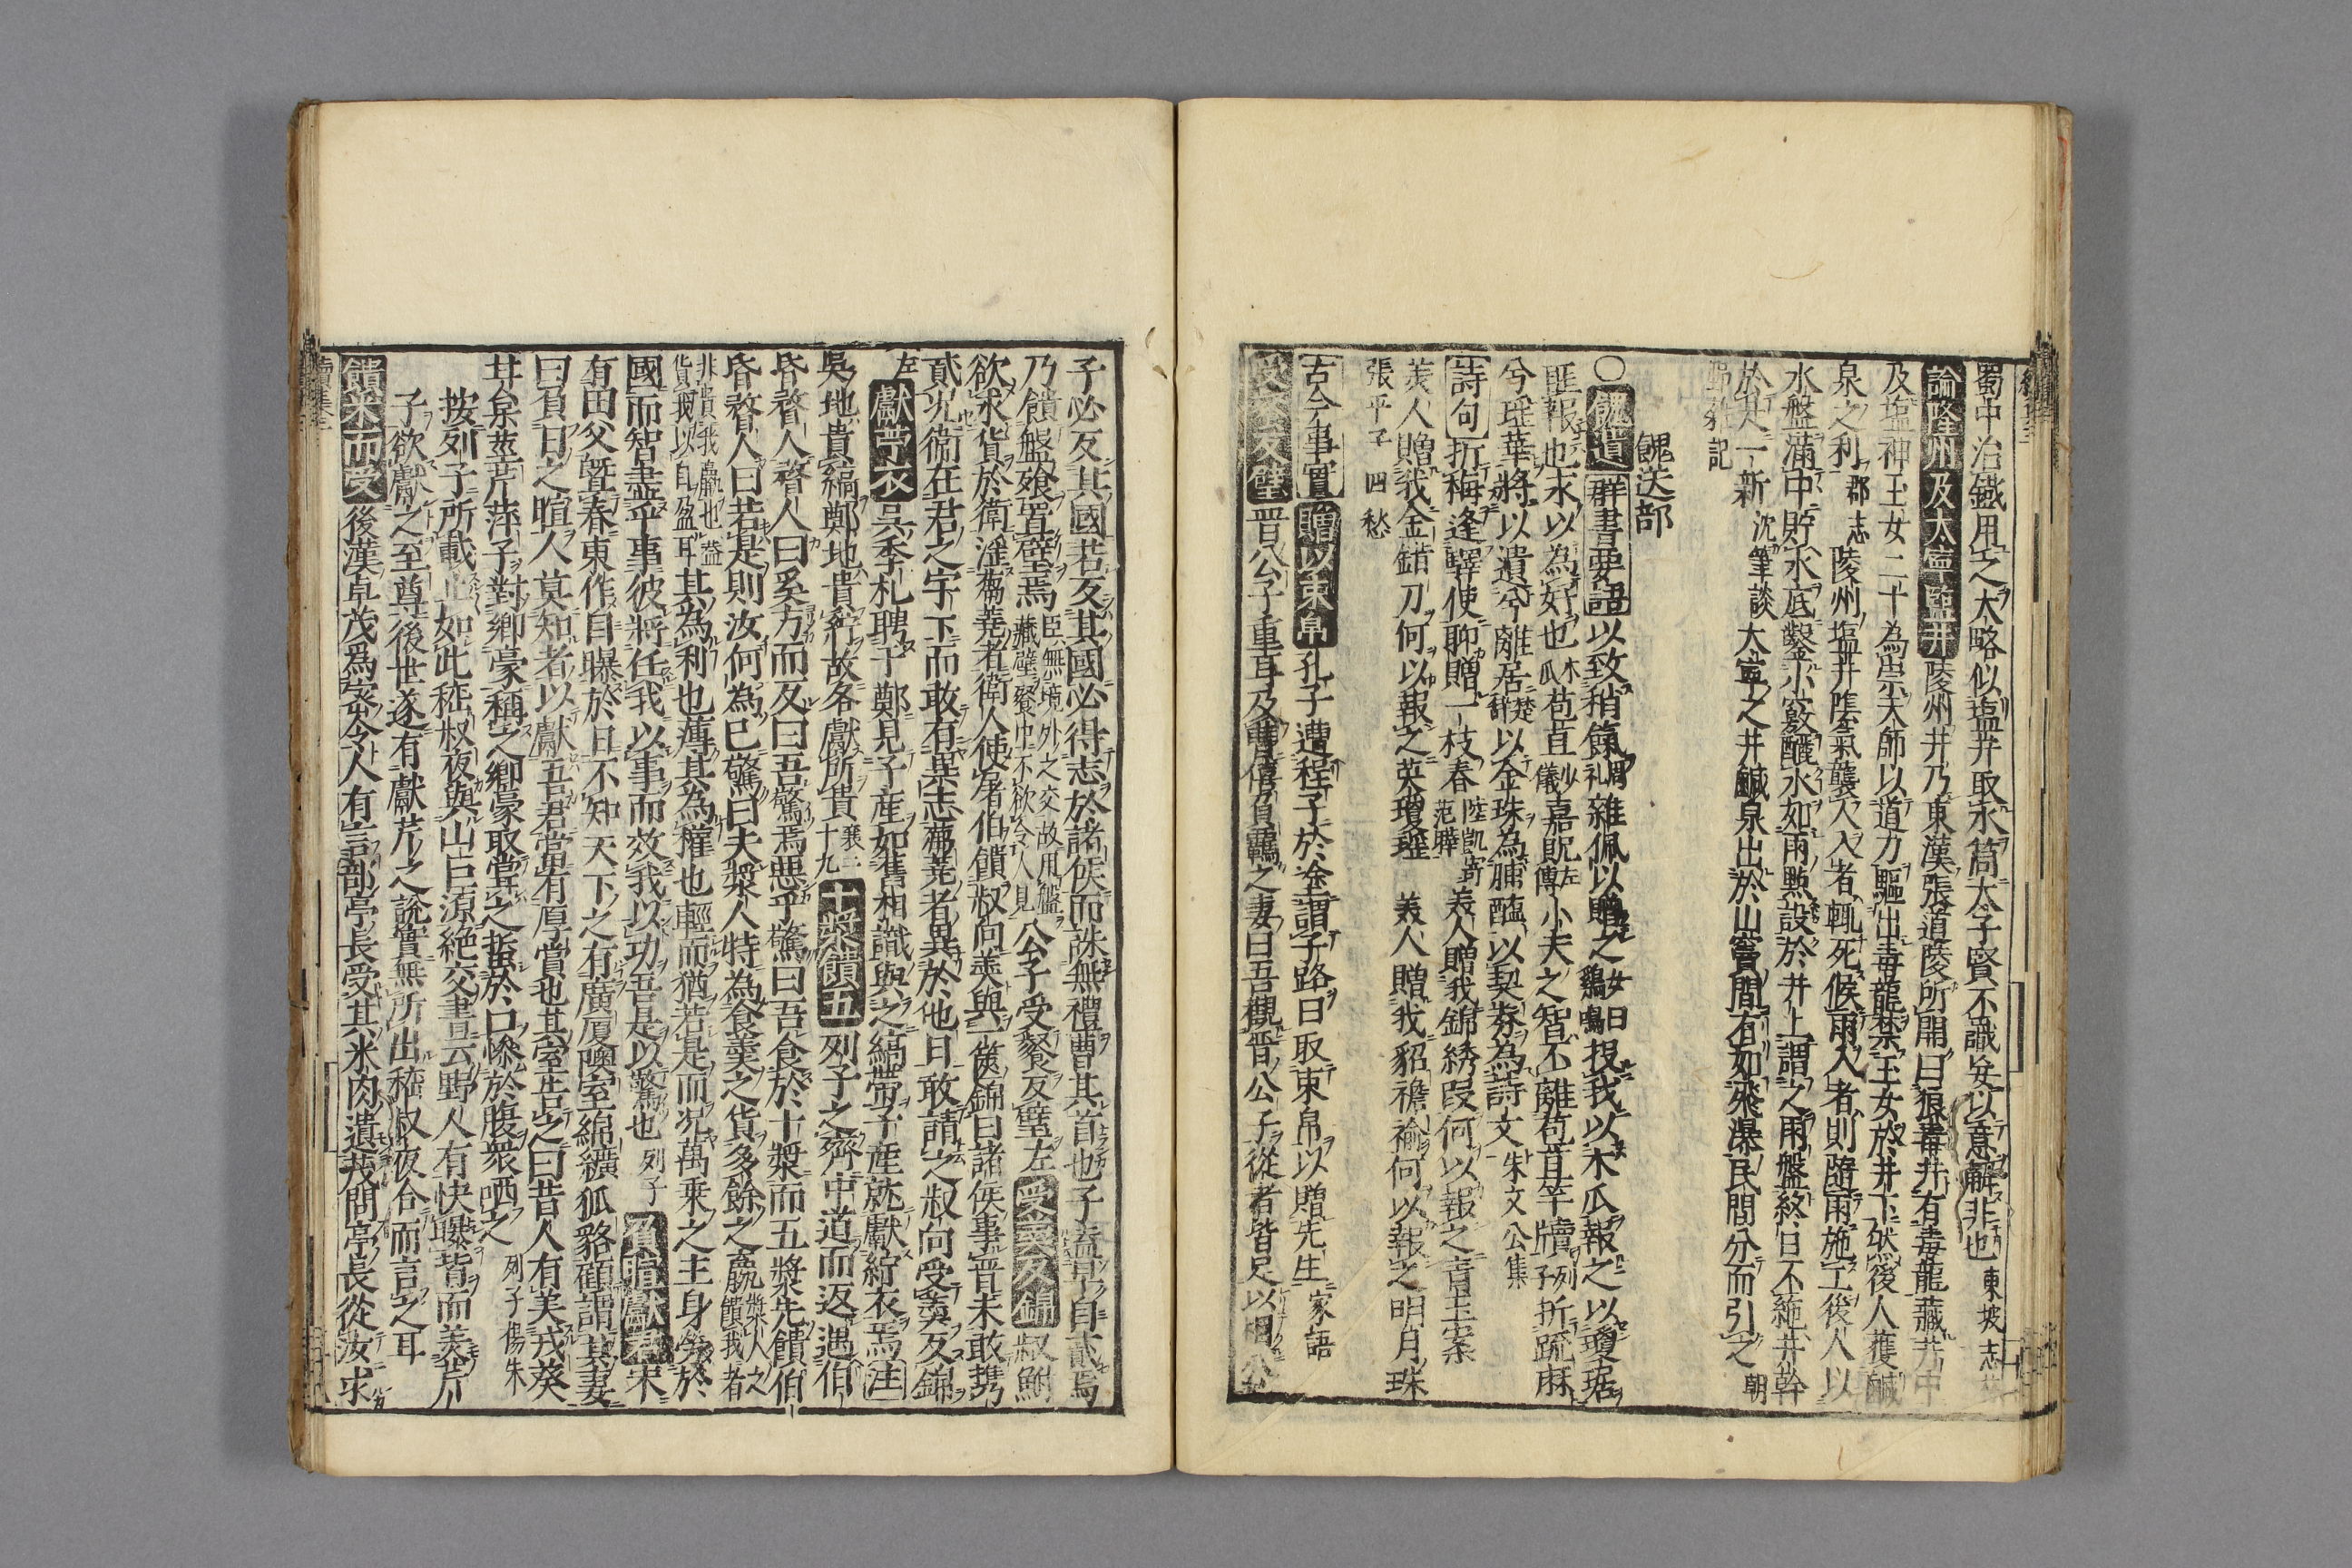 蜀中治鐵用之大略似塩井取水筒太子賢不識妄以意解非也東坡志林
論隆州及大寧塩井陵州井乃東漢張道陵所開曰狼毒井有毒龍藏井中
及塩神玉女二十為祟天師以道力驅出毒龍禁玉女於井下然後人獲鹹
泉之利郡志陵州塩井陰氣襲人入者輒死候雨入者則隨雨施工後人以
水盤滿中貯水底鑿小竅釃水如雨㸃設於井上謂之雨盤終日不絶井幹
於是一新沈筆談大寧之井鹹泉出於山竇間有如飛瀑民間分而引之朝
野雜記
餽送部
〇餽遺群書要語以致稍餼周礼雜佩以贈之女曰鷄鳴投我以木瓜報之以瓊琚
匪報也永以為好也木瓜苞苴少儀嘉貺左傳小夫之智不離苞苴竿牘列子折疏麻
兮瑶華將以遺兮離居楚辭以金珠為脯醢以契券為詩文朱文公集
詩句折梅逢驛使聊贈一枝春陸凱寄范曄美人贈我錦綉段何以報之青玉案
美人贈我金錯刀何以報之英瓊瑶美人贈我貂襜褕何以報之明月珠
張平子四愁
古今事實贈以束帛孔子遭程子於塗謂子路曰取束帛以贈先生家語
受飱反璧晋公子重耳及曹僖負羈之妻曰吾觀晋公子從者皆足以相
子必反其國若反其國必得志於諸侯而誅無禮曹其首也子盍早自貳焉
乃饋盤飱置璧焉臣無境外之交故用盤藏璧飱中不欲令人見公子受飱反璧左受羮反錦叔鮒
欲求貨於衛淫蒭蕘者衛人使屠伯饋叔向羮與一篋錦曰諸侯事晋未敢携
貳况衛在君之宇下而敢有異志蒭蕘者異於他日敢請之叔向受羮反錦
左獻苧衣吳季札聘于鄭見子産如舊相識與之縞帶子産獻紵衣焉注
吳地貴縞鄭地貴紵故各獻所貴襄二十九十漿饋五列子之齊中道而返遇伯
昏瞀人瞀人曰奚方而反曰吾驚焉惡乎驚曰吾食於十漿而五漿先饋伯
昏瞀人曰若是則汝何為已驚曰夫漿人特為食羮之貨多餘之贏漿人之饋我者
非貴我贏也益貨我以自盈耳其為利也薄其為權也輕而猶若是而况萬乗之主身勞於
國而智盡乎事彼將任我以事而效我以功吾是以驚也列子負暄獻君宋
有田父曁春東作自曝於日不知天下之有廣厦隩室綿纊狐貉顧謂其妻
曰負日之暄人莫知者以獻吾君當有厚賞也其室告之曰昔人有美戎葵
甘枲莖芹萍子對鄉豪稱之鄉豪取嘗之蜇於口慘於腹衆哂之列子楊朱
按列子所載止如此嵆叔夜與山巨源絶交書云野人有快曝背而美芹
子欲獻之至尊後世遂有獻芹之說實無所出嵆叔夜合而言之耳
饋米而受後漢卓茂為密令人有言部亭長受其米肉遺茂問亭長從汝求